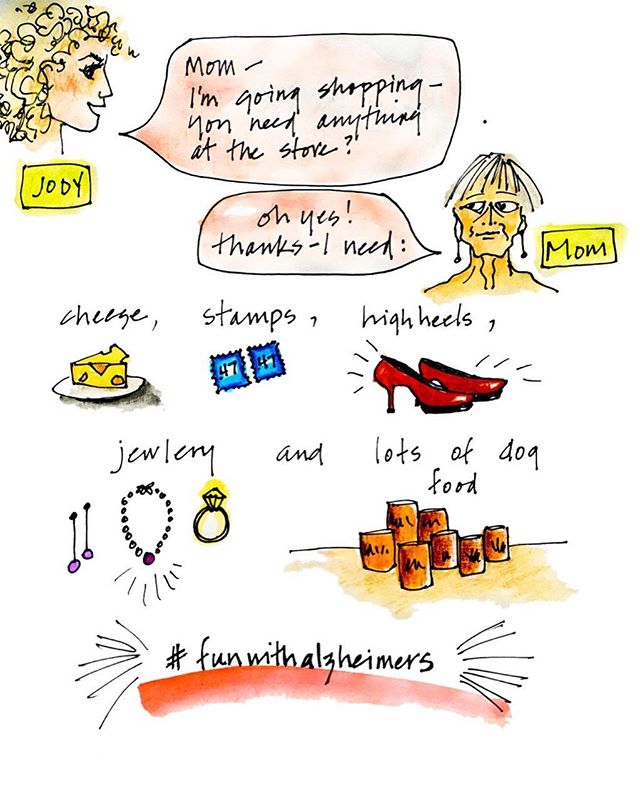 Mom -
I'm going shopping -
you need anything
at the store?
JODY
oh yes!
thanks - I need:
Mom
cheese, stamps, high heels,
47 47
jewlery and lots of dog
food
#funwithalzheimers